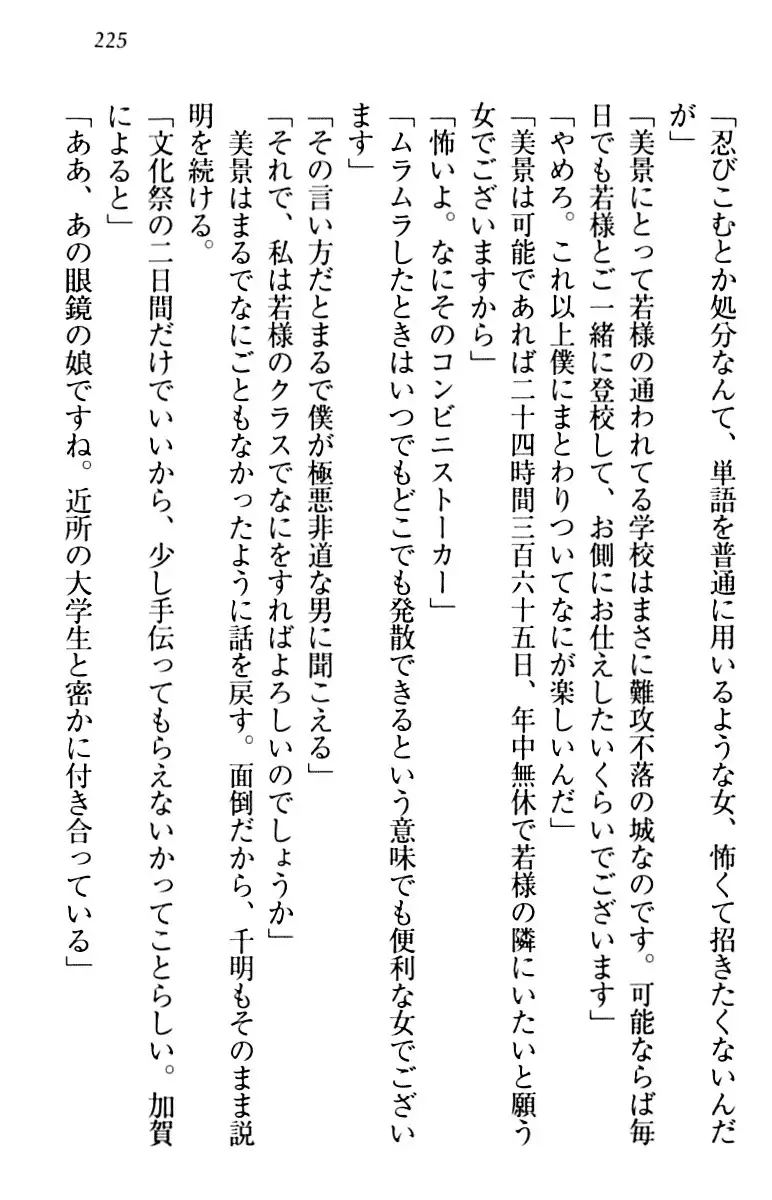 225
「忍びこむとか処分なんて、単語を普通に用いるような女、怖くて招きたくないんだ
が」
「美景にとって若様の通われてる学校はまさに難攻不落の城なのです。可能ならば毎
日でも若様とご一緒に登校して、お側にお仕えしたいくらいでございます」
「やめろ。これ以上僕にまとわりついてなにが楽しいんだ」
「美景は可能であれば二十四時間三百六十五日、年中無休で若様の隣にいたいと願う
女でございますから」
「怖いよ。なにそのコンビニストーカー」
「ムラムラしたときはいつでもどこでも発散できるという意味でも便利な女でござい
ます」
「その言い方だとまるで僕が極悪非道な男に聞こえる」
「それで、私は若様のクラスでなにをすればよろしいのでしょうか」
　美景はまるでなにごともなかったように話を戻す。面倒だから、千明もそのまま説
明を続ける。
「文化祭の二日間だけでいいから、少し手伝ってもらえないかってことらしい。加賀
によると」
「ああ、あの眼鏡の娘ですね。近所の大学生と密かに付き合っている」